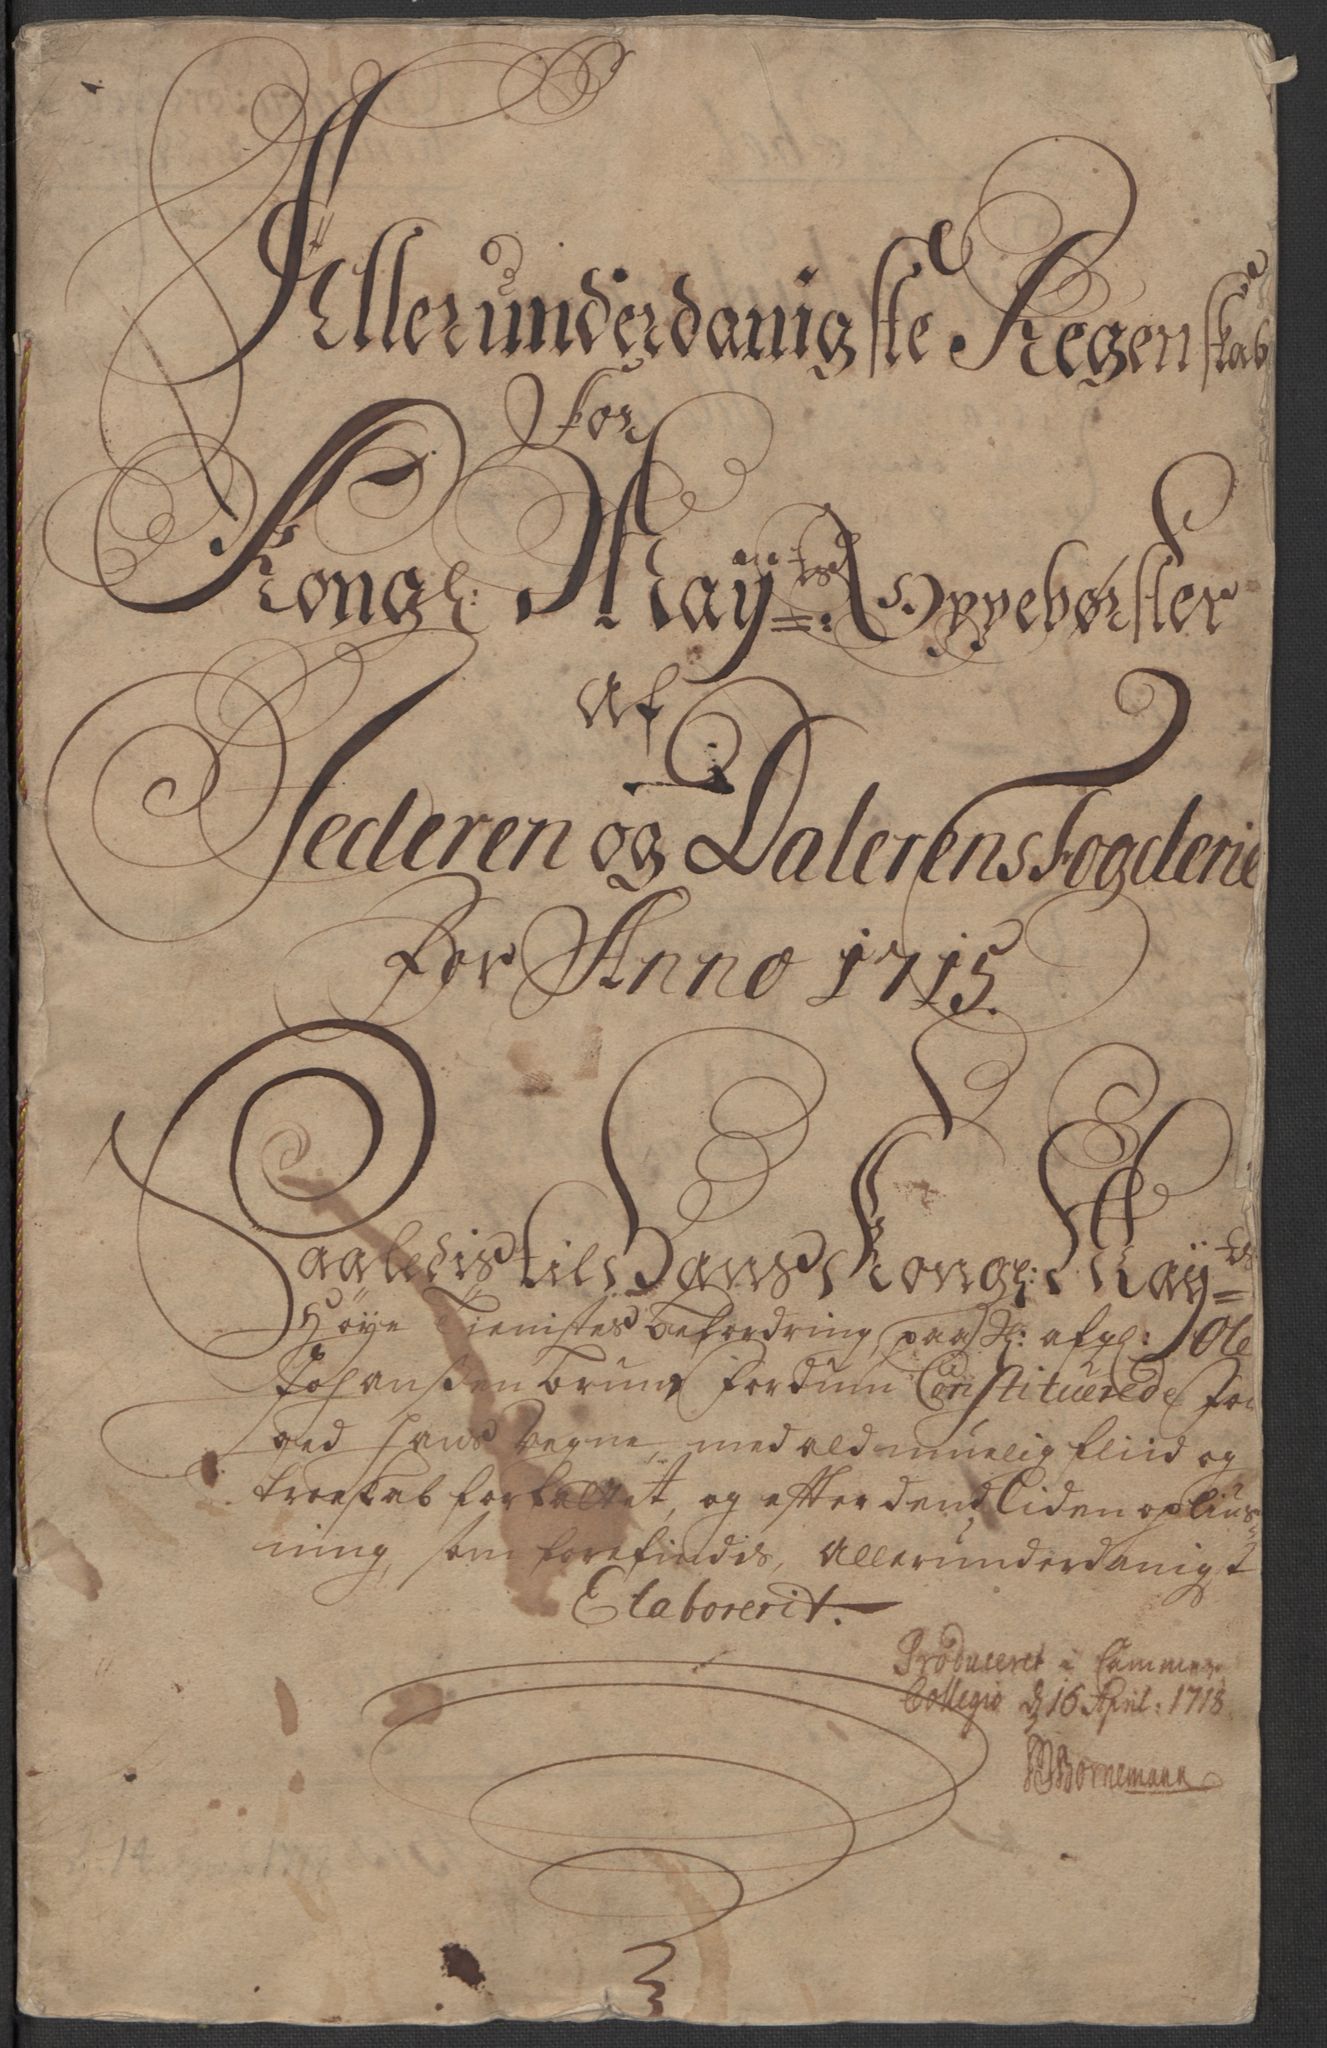 Allerunderdanigste Regenskab
For
Kongl: Maÿ=ts: Oppebørster
Af
Jederen og Dalerens Fogderie
For Anno 1715.
Saaledis til Hans Kongl: Maÿ=ts
Høÿe Tienistes befordring, paa Sl: afgl: Ole
Johanßen bruun fordum Constituerede Fo
ged hans Vegne, med ald muelig fliid og
troeskab forfattet, og efter dend liden oplius=
ning, som forefindis, Allerunderdanigst
Elaborerit.
Produceret i Cammer
Collegio d 16 April: 1718
Bornemann